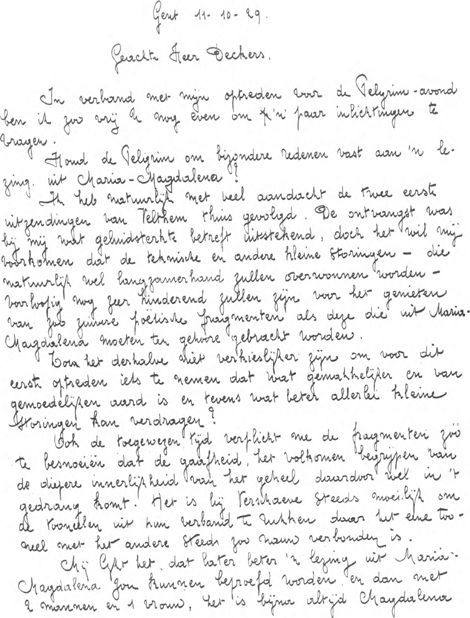 Gent 11-10-29.
Geachte Heer Deckers.
In verband met mijn optreden voor de Pelgrim-avond
ben ik zoo vrij U nog even om 'n paar inlichtingen te
vragen.
Houd de Pelgrim om bijzondere redenen vast aan 'n le-
zing uit Maria-Magdalena?
Ik heb natuurlijk met veel aandacht de twee eerste
uitzendingen van Velthem thuis gevolgd. De ontvangst was
bij mij wat geluidsterkte betreft uitstekend, doch het wil mij
voorkomen dat de technische en andere kleine storingen - die
natuurlijk wel langzamerhand zullen overwonnen worden -
voorloopig nog zeer hinderend zullen zijn voor het genieten
van zulk zuivere poëtische fragmenten als deze die uit Maria-
Magdalena moeten ten gehoore gebracht worden.
Zou het derhalve niet verkieslijker zijn om voor dit
eerste optreden iets te nemen dat wat gemakkelijker en van
gemoedelijken aard is en tevens wat beter allerlei kleine
storingen kan verdragen?
Ook de toegewezen tijd verplicht me de fragmenten zóó
te besnoeiën dat de gaafheid, het volkomen begrijpen van
de diepere innerlijkheid van het geheel daardoor wel in 't
gedrang komt. Het is bij Verschaeve steeds moeilijk om
de tooneelen uit hun verband te rukken daar het eene too-
neel met het andere steeds zoo nauw verbonden is.
Mij lijkt het, dat later beter 'n lezing uit Maria-
Magdalena zou kunnen beproefd worden en dan met
2 mannen en 1 vrouw, het is bijna altijd Magdalena